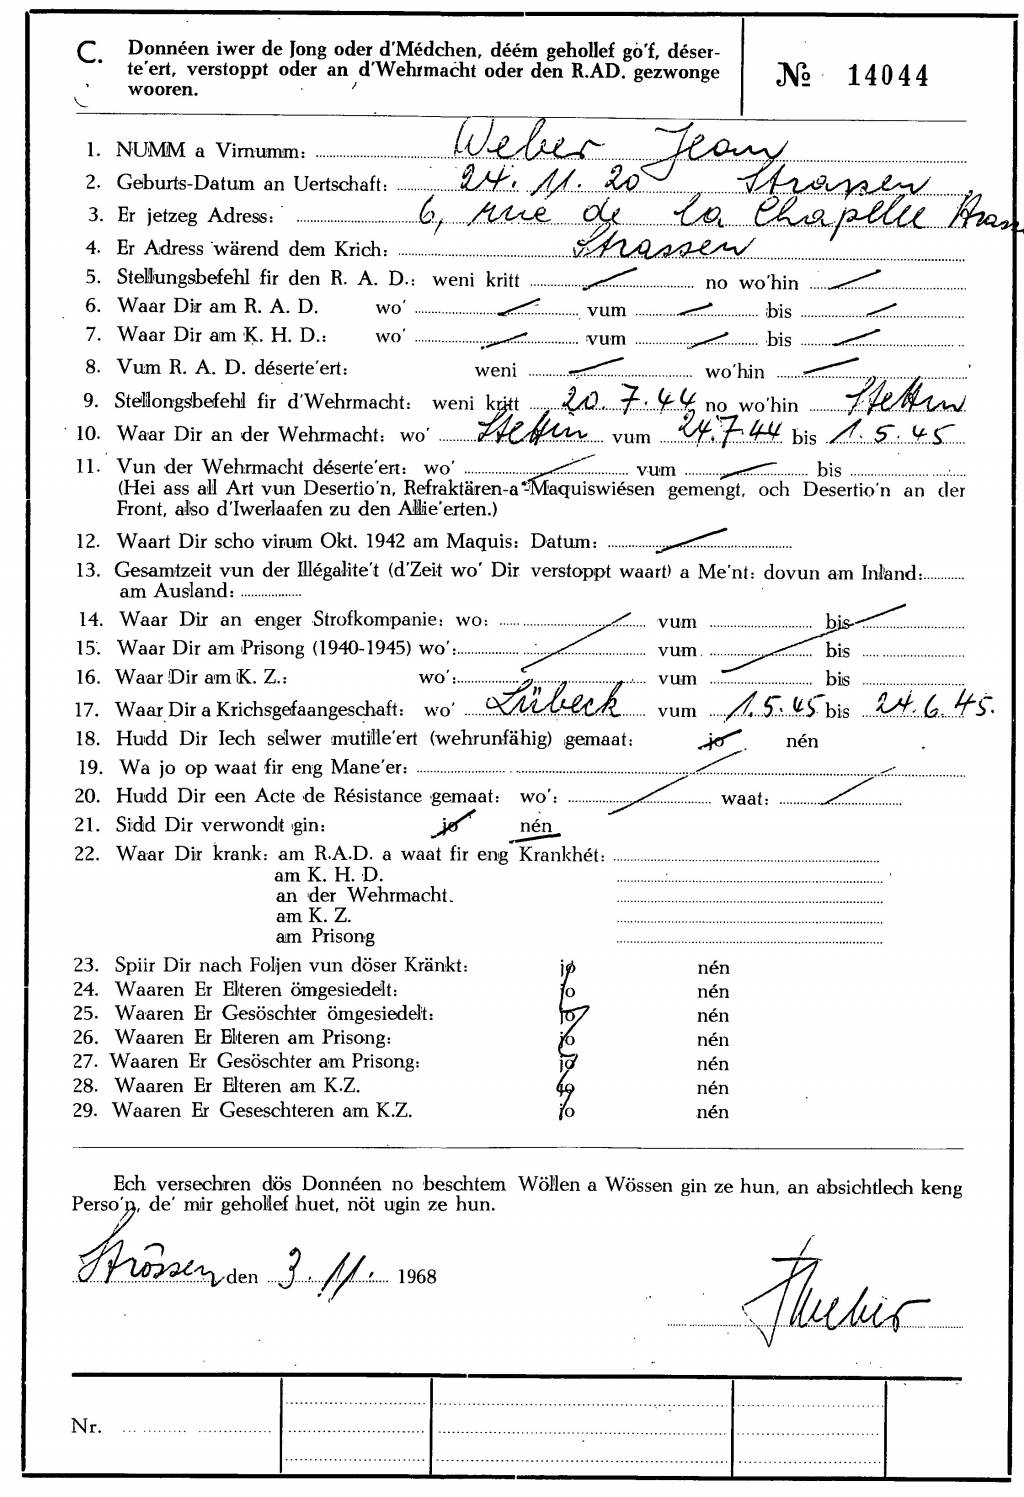 C. Donnéen iwer de Jong oder d'Médchen, déém gehollef go'f, déser-
te'ert, verstoppt oder an d'Wehrmacht oder den R.AD. gezwonge
wooren.
№ 14044
1. NUMM a Virnumm: Weber Jean
2. Geburts-Datum an Uertschaft: 24. 11. 20 Strassen
3. Er jetzeg Adress: 6, rue de la Chapelle
4. Er Adress wärend dem Krich: Strassen
5. Stellungsbefehl fir den R. A. D.: weni kritt no wo'hin
6. Waar Dir am R. A. D. wo' vum bis
7. Waar Dir am K. H. D.: wo' vum bis
8. Vum R. A. D. déserte'ert: weni wo'hin
9. Stellongsbefehl fir d'Wehrmacht: weni kritt 20. 7. 44 no wo'hin Stettin
10. Waar Dir an der Wehrmacht: wo' Stettin vum 24.7.44 bis 1. 5. 45
11. Vun der Wehrmacht déserte'ert: wo' vum bis
(Hei ass all Art vun Desertio'n, Refraktären-a-Maquiswiésen gemengt, och Desertio'n an der
Front, also d'Iwerlaafen zu den Allie'erten.)
12. Waart Dir scho virum Okt. 1942 am Maquis: Datum:
13. Gesamtzeit vun der Illégalite't (d'Zeit wo' Dir verstoppt waart) a Me'nt: dovun am Inland:
am Ausland:
14. Waar Dir an enger Strofkompanie: wo: vum bis
15. Waar Dir am Prisong (1940-1945) wo': vum bis
16. Waar Dir am K. Z.: wo': vum bis
17. Waar Dir a Krichsgefaangeschaft: wo' Lübeck vum 1. 5. 45 bis 24. 6. 45.
18. Hudd Dir Iech selwer mutille'ert (wehrunfähig) gemaat: jo nén
19. Wa jo op waat fir eng Mane'er:
20. Hudd Dir een Acte de Résistance gemaat: wo': waat:
21. Sidd Dir verwondt gin: jo nén
22. Waar Dir krank: am R.A.D. a waat fir eng Krankhét:
am K. H. D.
an der Wehrmacht.
am K. Z.
am Prisong
23. Spiir Dir nach Foljen vun döser Kränkt: jo nén
24. Waaren Er Elteren ömgesiedelt: jo nén
25. Waaren Er Gesöschter ömgesiedelt: jo nén
26. Waaren Er Elteren am Prisong: jo nén
27. Waaren Er Gesöschter am Prisong: jo nén
28. Waaren Er Elteren am K.Z. jo nén
29. Waaren Er Geseschteren am K.Z. jo nén
Ech versechren dös Donnéen no beschtem Wöllen a Wössen gin ze hun, an absichtlech keng
Perso'n, de' mir gehollef huet, nöt ugin ze hun.
Strössen den 3. 11. 1968
JWeber
Nr.